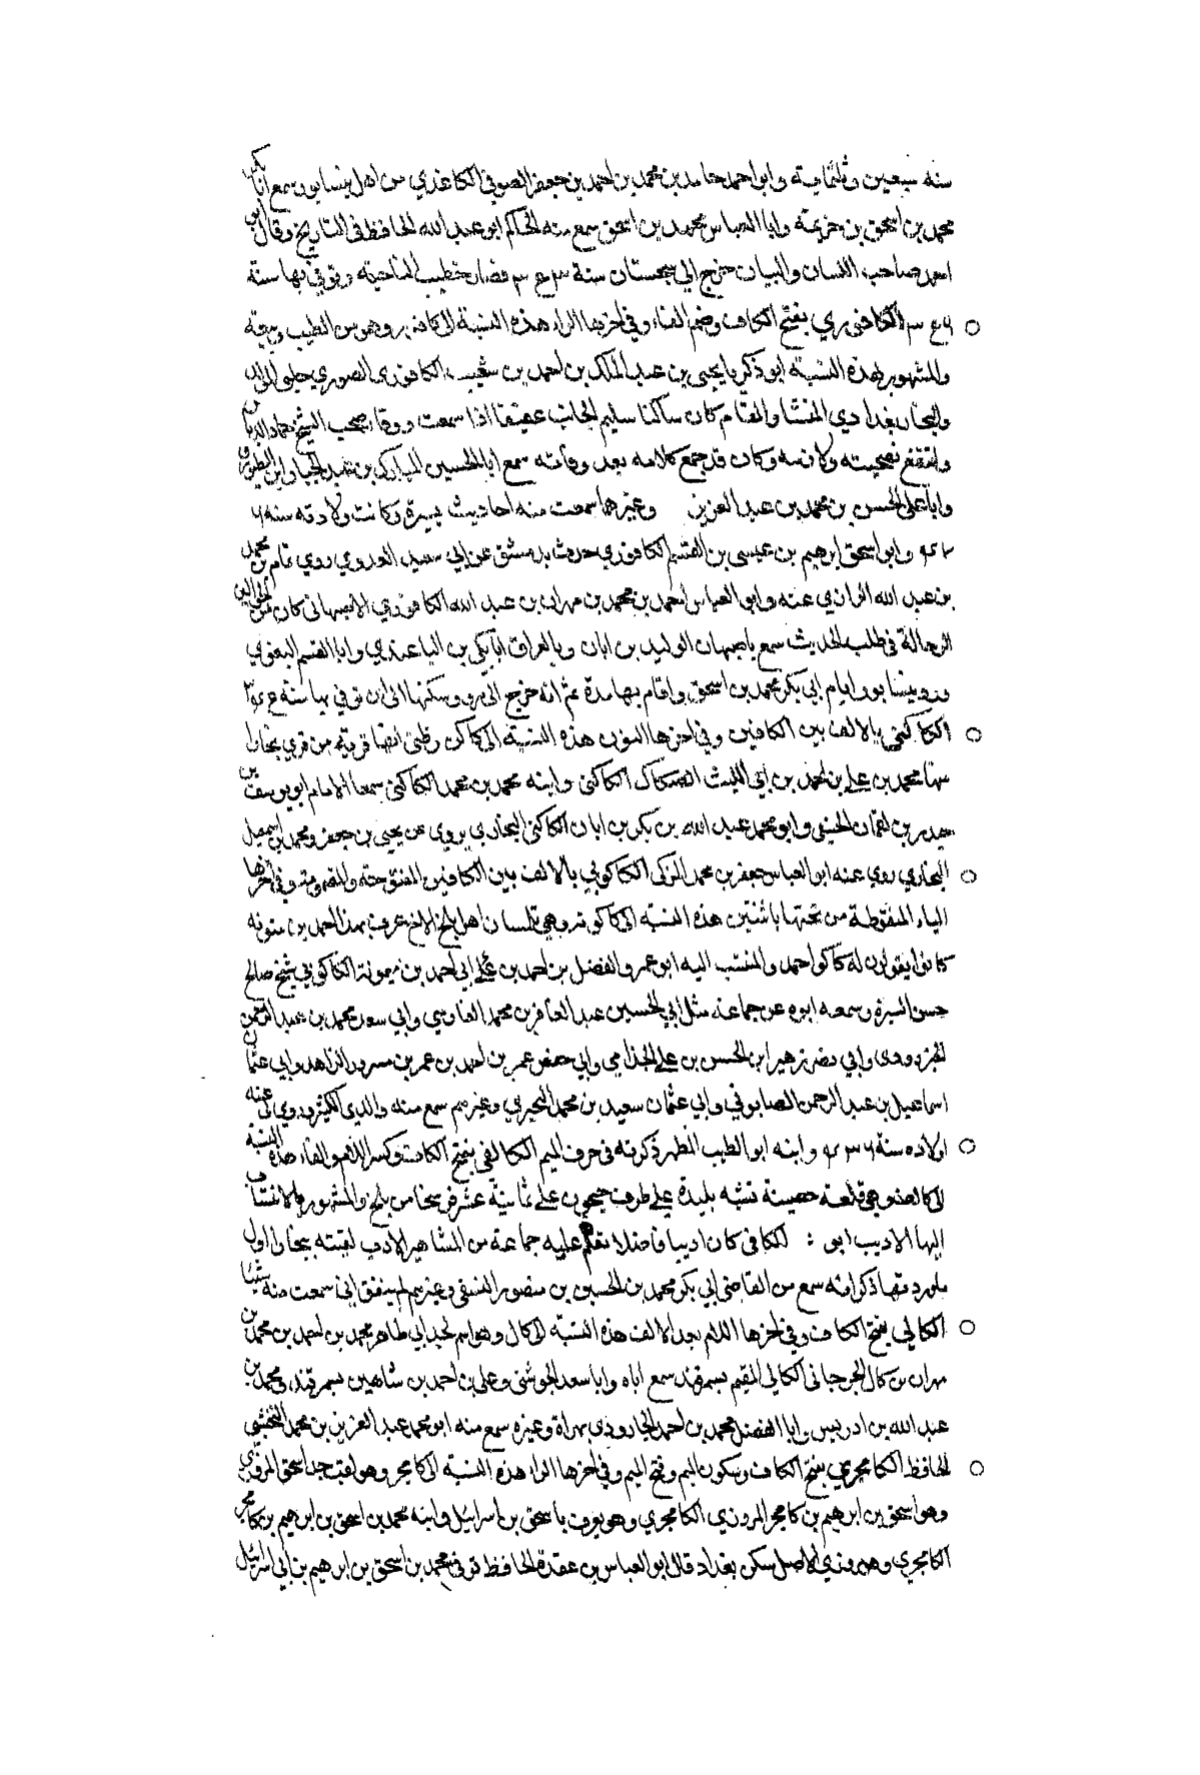 سنه سبعين وثلثماية وابو احمد حامد بن محمد بن احمد بن جعفر الصوفي الكاغذي من اهل نيسابور سمع ابا بكر
محمد بن اسحق بن خزيمة وابا العباس محمد بن اسحق سمع منه الحاكم ابو عبد الله الحافظ في التاريخ وقال ابو
احمد صاحب اللسان والبيان خرج الى سجستان سنة ٣٤٣ فصار خطيب الناحيه وتوفي بها سنة
٣٤٦ الكافوري بفتح الكاف وضم الفاء وفي اخرها الراء هذه النسبة الى كافور وهو من الطيب وبيعه
والمشهور بهذه النسبة ابو زكريا يحيى بن عبد الملك بن احمد بن شعيب الكافوري الصوري
والنجار بغدادي المنشا والمقام كان ساكنا سليم الجانب عفيفا اذا سمعت ووقار صحب الشيخ حماد الدباس
وانتفع بصحبته وكان قد جمع كلامه بعد وفاته سمع ابا الحسين المبارك بن عبد الجبار ابن الطيوري
وابا على الحسن بن محمد بن عبد العزيز وغيرهما سمعت منه احاديث يسيرة وكانت ولادته سنه
وابو اسحق ابرهيم بن عيسى بن القسم الكافوري حدث بدمشق عن ابي سعيد العدوي روي تمام بن محمد
بن عبد الله الرازي عنه وابو العباس احمد بن محمد بن مهران بن عبد الله الكافوري الاصبهاني كان من
الرحالة في طلب الحديث سمع باصبهان الوليد بن ابان وبالعراق ابا بكر بن الباغندي وابا القسم البغوي
ورد نيسابور ايام ابي بكر محمد بن اسحق واقام بها مدة ثم انه خرج الى مرو وسكنها الى ان توفي بها سنة
الكاكني بالالف بين الكافين وفي اخرها النون هذه النسبة الى كاكن وظني انها قرية من قري بخارا
منها محمد بن علي بن احمد بن ابي الليث الصكاك الكاكنى وابنه محمد بن محمد الكاكني سمعا الامام ابو يوسف بن
بن لقمان الحنفي وابو محمد عبد الله بن بكر بن ابان الكاكني البخاري يروي عن يحيى بن جعفر ومحمد بن اسمعيل
البخاري روي عنه ابو العباس جعفر بن محمد المزكي الكاكويي بالالف بين الكافين المفتوحة والمضمومة وفي اخرها
الياء المنقوطة من تحتها باثنتين هذه النسبة الى كاكويه وهي بلسان اهل بلخ الاخ عرف بهذا احمد بن متويه
كانوا يقولون له كاكو احمد والمنتسب اليه ابو عمرو الفضل بن احمد بن علي ابي احمد بن الكاكويي شيخ صالح
حسن السيرة وسمعه ابوه عن جماعة مثل ابي الحسين عبد الغافر بن محمد الفارسي وابي سعد محمد بن عبد الرحمن
الجنزرودى وابي مضر زهير ابن الحسن بن علي الجذامي وابي حفص عمر بن احمد بن عمر بن مسرور الزاهد وابي عثمان
اسماعيل بن عبد الرحمن الصابوني وابي عثمان سعيد بن محمد البحيري وغيرهم سمع منه والدي الكثير وروي لي عنه
اولاده سنة وابنه ابو الطيب المطهر ذكرته في حرف الميم الكالفي بفتح الكاف وكسر اللام والفاء هذه النسبة
الى كالف وهي قلعة حصينة تشبه بليدة على طرف جيحون على ثمانية عشر فرسخا من بلخ والمشهور بالانتساب
اليها الاديب ابو : الكالفي كان اديبا فاضلا تقدم عليه جماعة من المشاهير الادب لقيته ببخارا اول
ما وردتها ذكر انه سمع من القاضي ابي بكر محمد بن الحسين بن منصور النسفي وغيرهم لم يتفق لي سمعت منه شيئا
الكالي بفتح الكاف وفي اخرها اللام بعد الالف هذه النسبة الى كال وهو اسم لجد ابي طاهر محمد بن احمد بن محمد بن
مهران بن كال الجرجاني الكالي المقيم بسمرقند سمع اباه وابا سعد الجوشني وعلى بن احمد بن شاهين بسمرقند ومحمد بن
عبد الله بن ادريس وابا الفضل محمد بن احمد الجارودي بهراة وغيره سمع منه ابو محمد عبد العزيز بن محمد النخشبي
الحافظ الكامجري بفتح الكاف وسكون الميم وفتح الميم وفي اخرها الراء هذه النسبة الى كامجر وهو لقب جد اسحق المروزي
وهو اسحق بن ابرهيم بن كامجر المروزي الكامجري وهو يعرف باسحق بن اسرائيل وابنه محمد بن اسحق بن ابرهيم بن كامجر
الكامجري وهو مروزي الاصل سكن بغداد قال ابو العباس بن عقدة الحافظ توفي محمد بن اسحق بن ابرهيم بن ابي اسرائيل